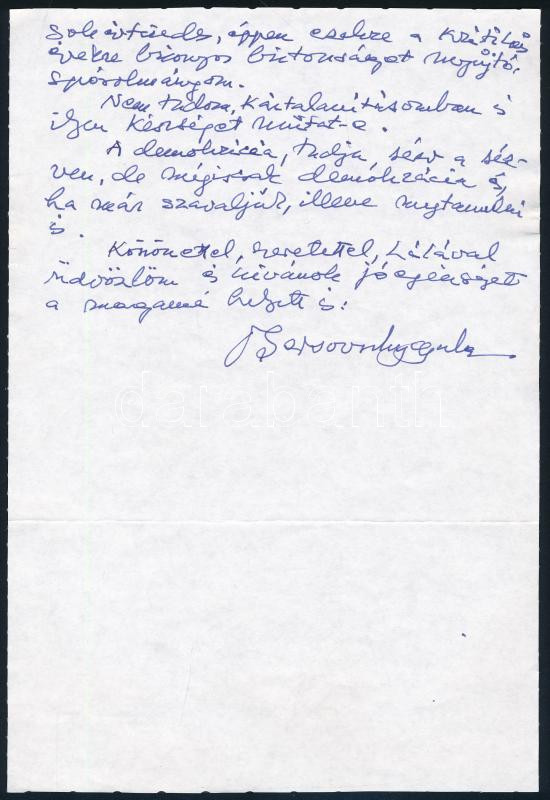 sokévtizedes, éppen ezekre a kritikus
évekre bizonyos biztonságot megnyújtó
spórolmányom.
Nem tudom, kártalanításomban is
ilyen készséget mutat-e.
A demokrácia, tudja, sérv a sér-
ven, de mégiscsak demokrácia és,
ha már szavaljuk, illene megtanulni
is.
Köszönettel, szeretettel, hálával
üdvözlöm és kívánok jóegészséget
a magamé helyett is:
darabanth.com